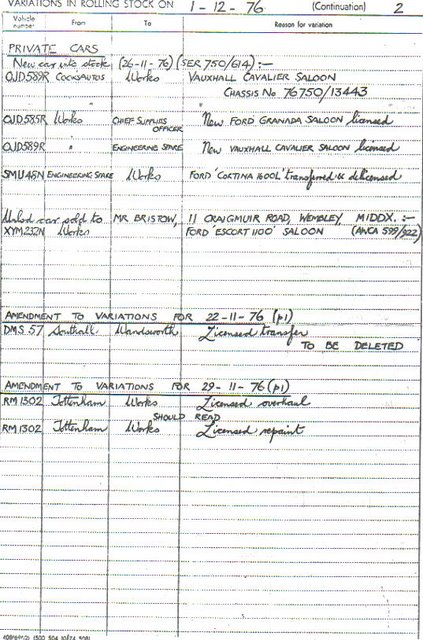 VARIATIONS IN ROLLING STOCK ON 1-12-76 (Continuation) 2
Vehicle number From To Reason for variation
PRIVATE CARS
New car into stock (26-11-76) (SER 750/614) :-
OJD589R COCKSAUTOS Works VAUXHALL CAVALIER SALOON
CHASSIS No 76750/13443
OJD585R Works CHIEF SUPPLIES OFFICER New FORD GRANADA SALOON licensed
OJD589R " ENGINEERING SPARE New VAUXHALL CAVALIER SALOON licensed
SMU48N ENGINEERING SPARE Works FORD 'CORTINA 1600L' transferred & delicensed
Unlsd car sold to MR BRISTOW, 11 CRAIGMUIR ROAD, WEMBLEY, MIDDX. :-
XYM232N Works FORD 'ESCORT 1100' SALOON (AWCA 599/922)
AMENDMENT TO VARIATIONS FOR 22-11-76 (p1)
DMS 57 Southall Wandsworth Licensed transfer
TO BE DELETED
AMENDMENT TO VARIATIONS FOR 29-11-76 (p1)
RM1302 Tottenham Works Licensed overhaul
SHOULD READ
RM1302 Tottenham Works Licensed repaint